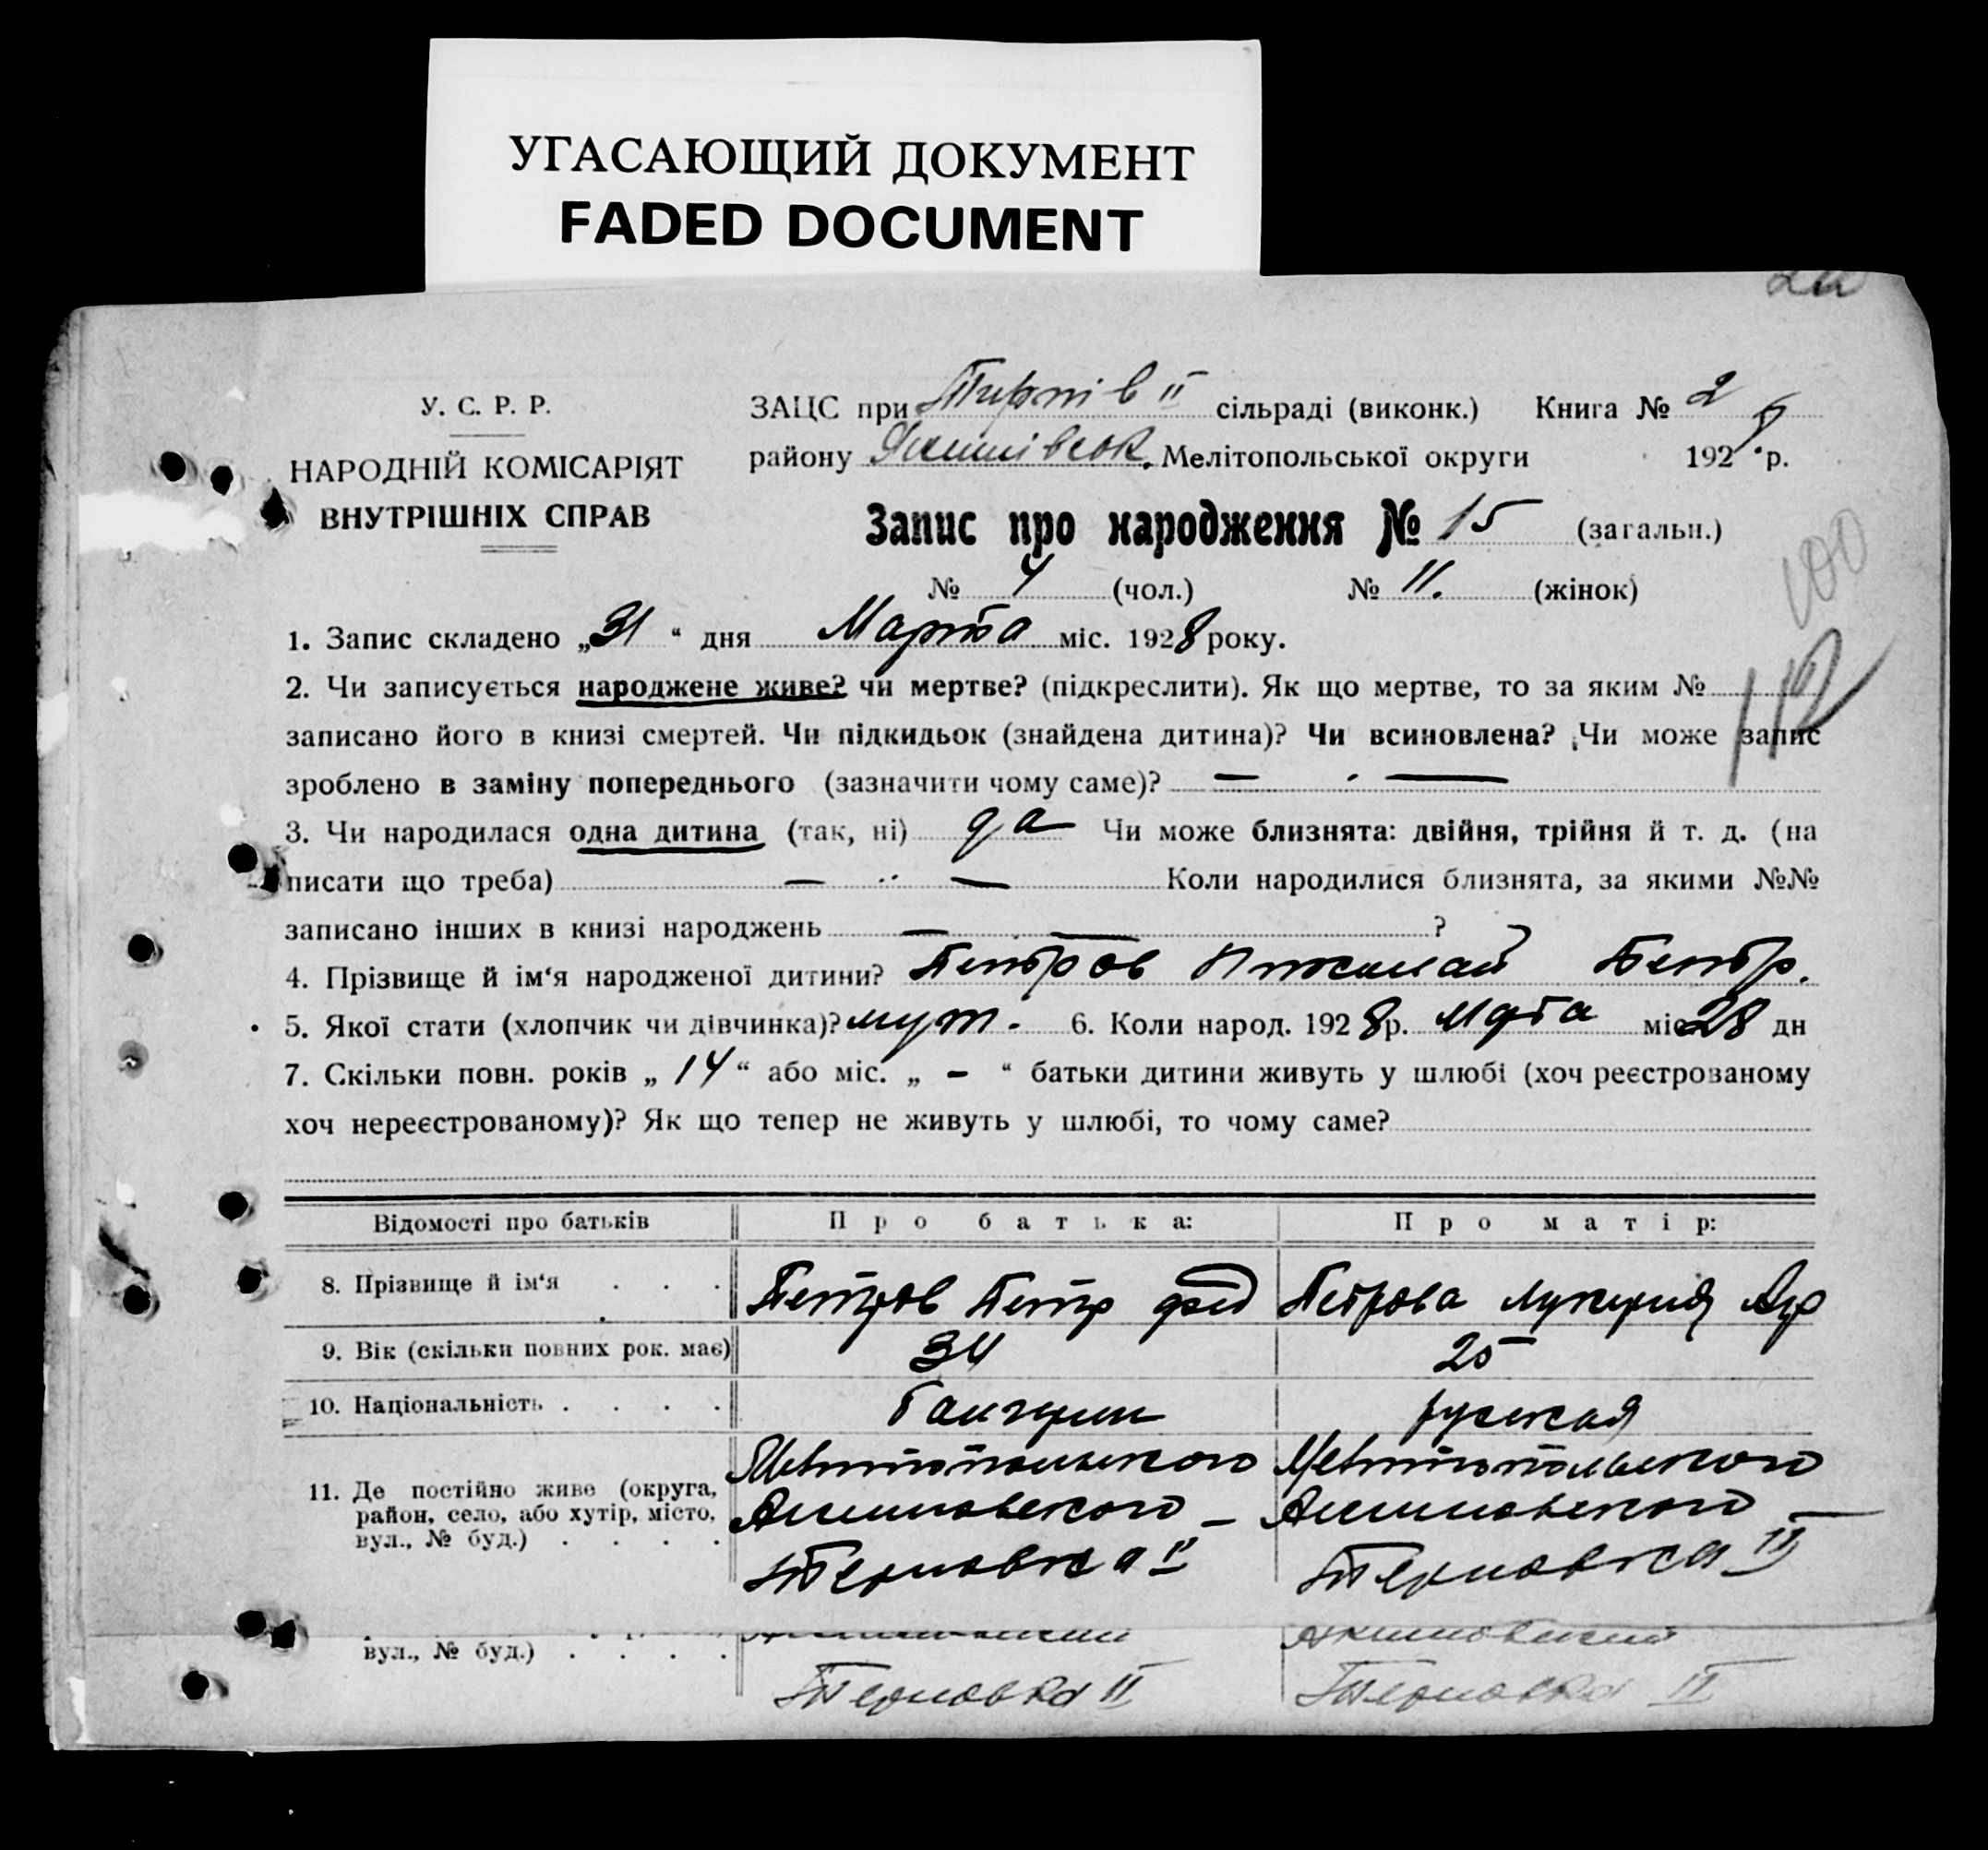 УГАСАЮЩИЙ ДОКУМЕНТ
FADED DOCUMENT
У. С. Р. Р.
НАРОДНІЙ КОМІСАРІЯТ
ВНУТРІШНІХ СПРАВ
ЗАЦС при II сільраді (виконк.) Книга № 2
району Мелітопольської округи 192 р.
Запис про народження № 15 (загальн.)
№ 4 (чол.) № 11. (жінок)
100
112
1. Запис складено „31“ дня Марта міс. 1928 року.
2. Чи записується народжене живе? чи мертве? (підкреслити). Як що мертве, то за яким №
записано його в книзі смертей. Чи підкидьок (знайдена дитина)? Чи всиновлена? Чи може запис
зроблено в заміну попереднього (зазначити чому саме)? — —
3. Чи народилася одна дитина (так, ні) да Чи може близнята: двійня, трійня й т. д. (на
писати що треба) — — Коли народилися близнята, за якими №№
записано інших в книзі народжень — — ?
4. Прізвище й ім‘я народженої дитини? Петров Николай Петр.
5. Якої стати (хлопчик чи дівчинка)? муж. 6. Коли народ. 1928 р. Марта міс 28 дн
7. Скільки повн. років „14“ або міс. „ – “ батьки дитини живуть у шлюбі (хоч реєстрованому
хоч нереєстрованому)? Як що тепер не живуть у шлюбі, то чому саме?
Відомості про батьків Про батька: Про матір:
8. Прізвище й ім‘я . . . Петров Петр фед Петрова Лукерия
9. Вік (скільки повних рок. має) 34 25
10. Національність . . . . Болгарин русская
11. Де постійно живе (округа, Мелитопольского Мелитопольского
район, село, або хутір, місто, Акимовского – Акимовского –
вул., № буд.) . . . . Терновка II Терновка II
Акимовский
вул., № буд.) . . . . Терновка II Терновка II